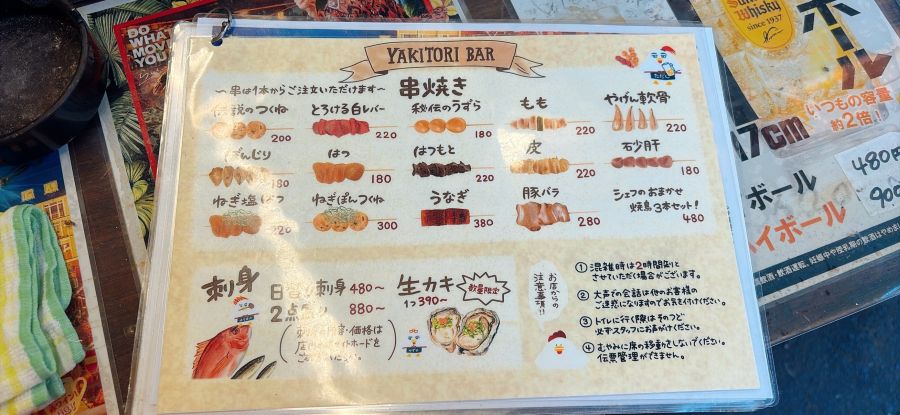 DO
WHAT
MOVE
YOU
YAKITORI BAR
ただし
～串は1本からご注文いただけます～
串焼き
伝説のつくね
200
とろける白レバー
220
秘伝のうずら
180
もも
220
やげん軟骨
220
ぼんじり
180
はつ
180
はつもと
220
皮
180
砂肝
220
ねぎ塩はつ
220
ねぎぽんつくね
300
うなぎ
380
豚バラ
280
シェフのおまかせ
焼鳥3本セット!
480
刺身
刺身 480～
2点 880～
価格は
ホードを
生カキ
1つ390～
数量限定
お店からの
注意事項!!
① 混雑時は2時間制と
させていただく場合がございます。
② 大声での会話は他のお客様の
ご迷惑になりますのでお気を付けください。
③ トイレに行く際はそのつど
必ずスタッフにお声がけください。
④ むやみに席の移動をしないでください。
伝票管理ができません。
Whisky
since 1937
ボール
いつもの容量
約2倍!
17cm
480円
900
ボール
イボール
飲酒・飲酒運転、妊娠中や授乳期の飲酒はやめま